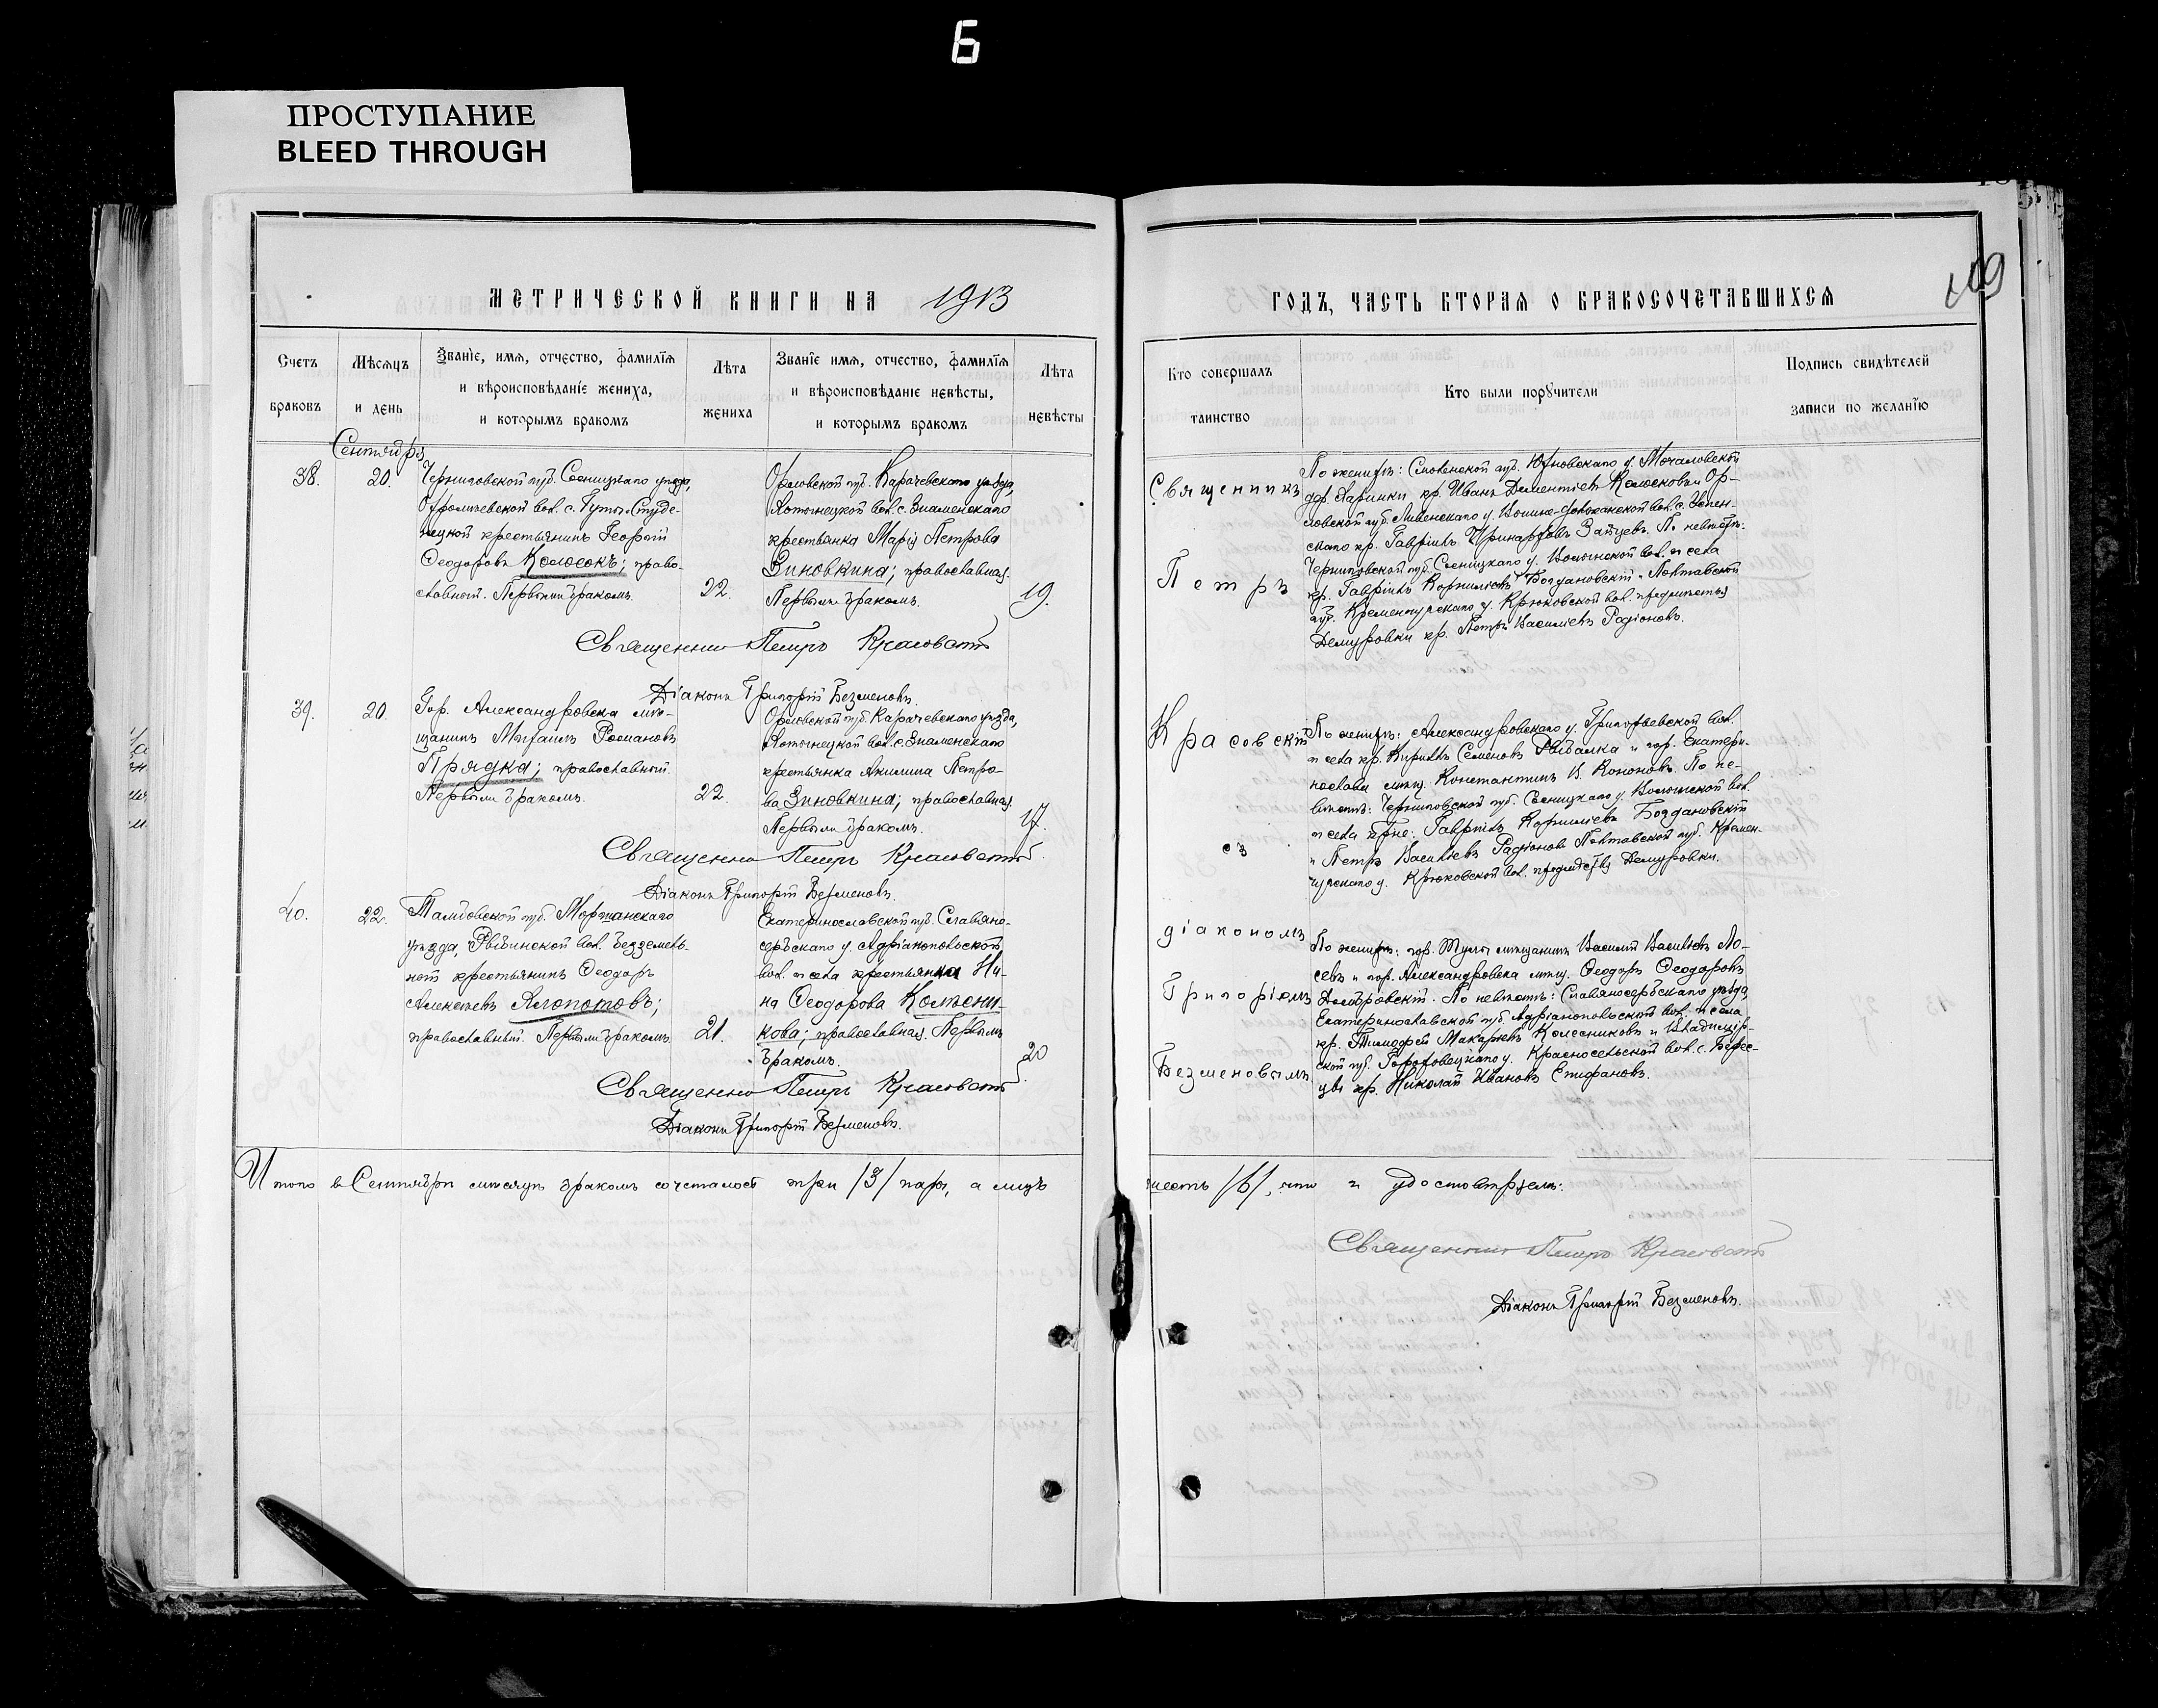 Б
ПРОСТУПАНИЕ
BLEED THROUGH
МЕТРИЧЕСКОЙ КНИГИ НА 1913
Счетъ браковъ
Мѣсяцъ и день
Званіе, имя, отчество, фамилія
и вѣроисповѣданіе жениха,
и которымъ бракомъ
Лѣта жениха
Званіе имя, отчество, фамилія
и вѣроисповѣданіе невѣсты,
и которымъ бракомъ
Лѣта невѣсты
Сентября
38.
20.
Черниговской губ. Сосницкаго уѣзда,
вол. с. Студе-
нецкой крестьянинъ Георгій
Ѳеодоровъ Колосокъ; право-
славный. Первымъ бракомъ.
22.
Орловской губ. Карачевскаго уѣзда,
вол. с. Знаменскаго
крестьянка Марія Петрова
Зиновкина; православная.
Первымъ бракомъ.
19.
Священник Петръ Красовскій
Діаконъ Григорій Безменовъ.
39.
20.
Гор. Александровска мѣ-
щанинъ Михаилъ Романовъ
Прядка; православный.
Первымъ бракомъ.
22.
Орловской губ. Карачевскаго уѣзда,
вол. с. Знаменскаго
крестьянка Акилина Петро-
ва Зиновкина; православная.
Первымъ бракомъ.
17.
Священник Петръ Красовскій
Діаконъ Григорій Безменовъ.
40.
22.
Тамбовской губ. Моршанскаго
уѣзда, вол. Безземель-
ной крестьянинъ Ѳеодоръ
Алексѣевъ Хлопотовъ;
православный. Первымъ бракомъ.
21.
Екатеринославской губ. Славяно-
сербскаго у. Адріанопольской
вол. и села крестьянка Ни-
на Ѳеодорова
кова; православная. Первымъ
бракомъ.
20
Священник Петръ Красовскій
Діаконъ Григорій Безменовъ.
Итого в Сентябрѣ мѣсяцѣ бракомъ сочеталось три /3/ пары, а лицъ
109
ГОДЪ, ЧАСТЬ ВТОРАЯ О БРАКОСОЧЕТАВШИХСЯ
Кто совершалъ таинство
Кто были поручители
Подпись свидѣтелей
записи по желанію
Священникъ
Петръ
Красовскій
съ
діакономъ
Григоріемъ
Безменовымъ
По женихѣ: Смоленской губ. Юхновскаго у. Мочаловской
дер. Ларинки кр. Иванъ Дементіевъ и Ор-
ловской губ. Ливенскаго у. вол. с. Успен-
скаго кр. Гавріилъ Зайцевъ. По невѣстѣ:
Черниговской губ. Сосницкаго у. Волынской вол. и села
кр. Гавріилъ Корниліевъ Богдановскій и Полтавской
губ. Кременчугскаго у. Крюковской вол. предмѣстья
Демуровки кр. Петръ Василіевъ Радіоновъ.
По женихѣ: Александровскаго у. Григорьевской вол.
и села кр. Кириллъ Семеновъ Рыбалка и гор. Екатери-
нослава мѣщ. Константинъ И. Кононовъ. По не-
вѣстѣ: Черниговской губ. Сосницкаго у. Волынской вол.
и села кр-не: Гавріилъ Корниліевъ Богдановскій
и Петръ Василіевъ Радіоновъ Полтавской губ. Кремен-
чугскаго у. Крюковской вол. предмѣстья Демуровки.
По женихѣ: гор. Тулы мѣщанинъ Василій Василіевъ Ло-
севъ и гор. Александровска мѣщ. Ѳеодоръ Ѳеодоровъ
Домбровскій. По невѣстѣ: Славяносербскаго уѣзда,
Екатеринославской губ. Адріанопольской вол. и села
кр. Тимофей Макаріевъ Колесниковъ и Владимір-
ской губ. Гороховецкаго у. Красносельской вол. с.
кр. Николай Ивановъ Епифановъ.
шесть /6/, что и удостовѣряемъ:
Священник Петръ Красовскій
Діаконъ Григорій Безменовъ.